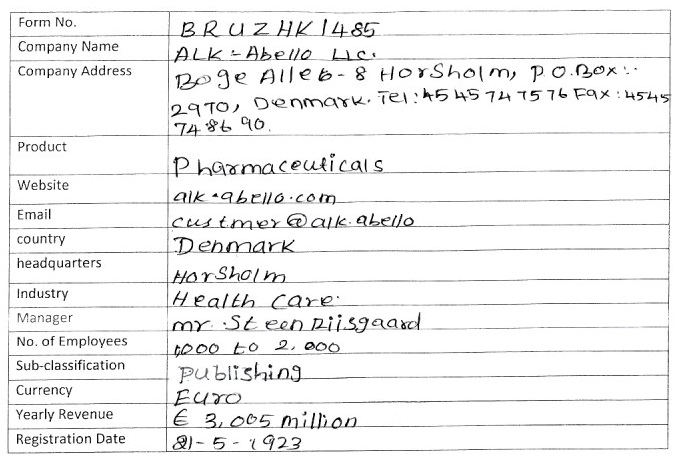 Form No. BRUZHK1485
Company Name ALK-Abello LLC.
Company Address Boge Alleb-8 Horsholm, P.O.Box:
2970, Denmark. Tel:4545747576 Fax:4545
748690.
Product Pharmaceuticals
Website alk-abello.com
Email custmer@alk.abello
country Denmark
headquarters Horsholm
Industry Health care.
Manager mr. Steen Riisgaard
No. of Employees 1000 to 2,000
Sub-classification Publishing
Currency Euro
Yearly Revenue € 3,005 million
Registration Date 21-5-1923